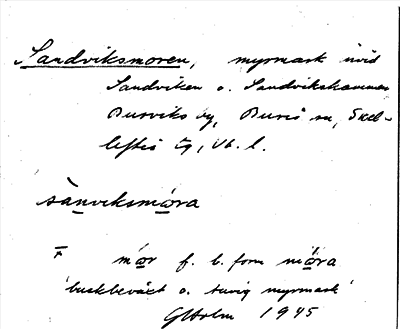 Sandviksmoren, myrmark invid
Sandviken o. Sandvikshamnen
Bureviks by, Bureå sn, Skel-
lefteå tg, Vb. l.
sànviksmóra
F mór f. b. form móra
'buskbeväxt o. tuvig myrmark'
G Holm 1945